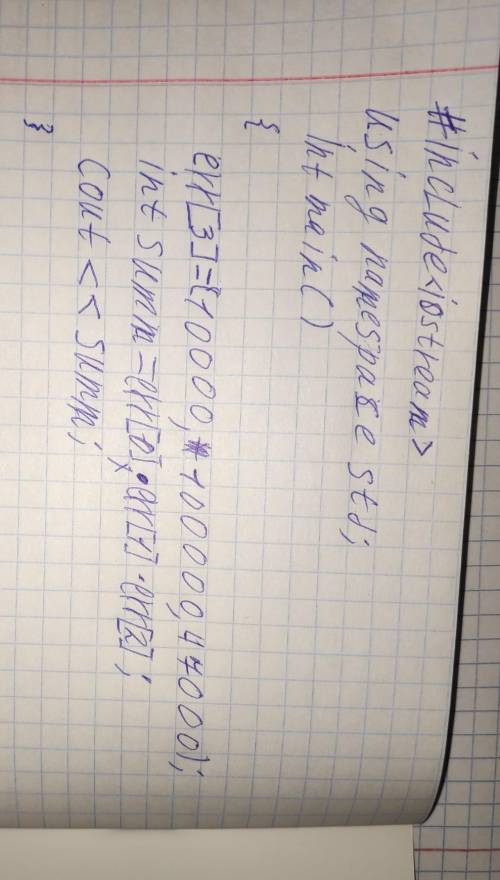 #include<iostream>
Using namespace std;
Int main()
{
err[3]={10000, 100000,47000);
int Summ=err[0]•err[1]•err[2];
Cout << Summ;
}